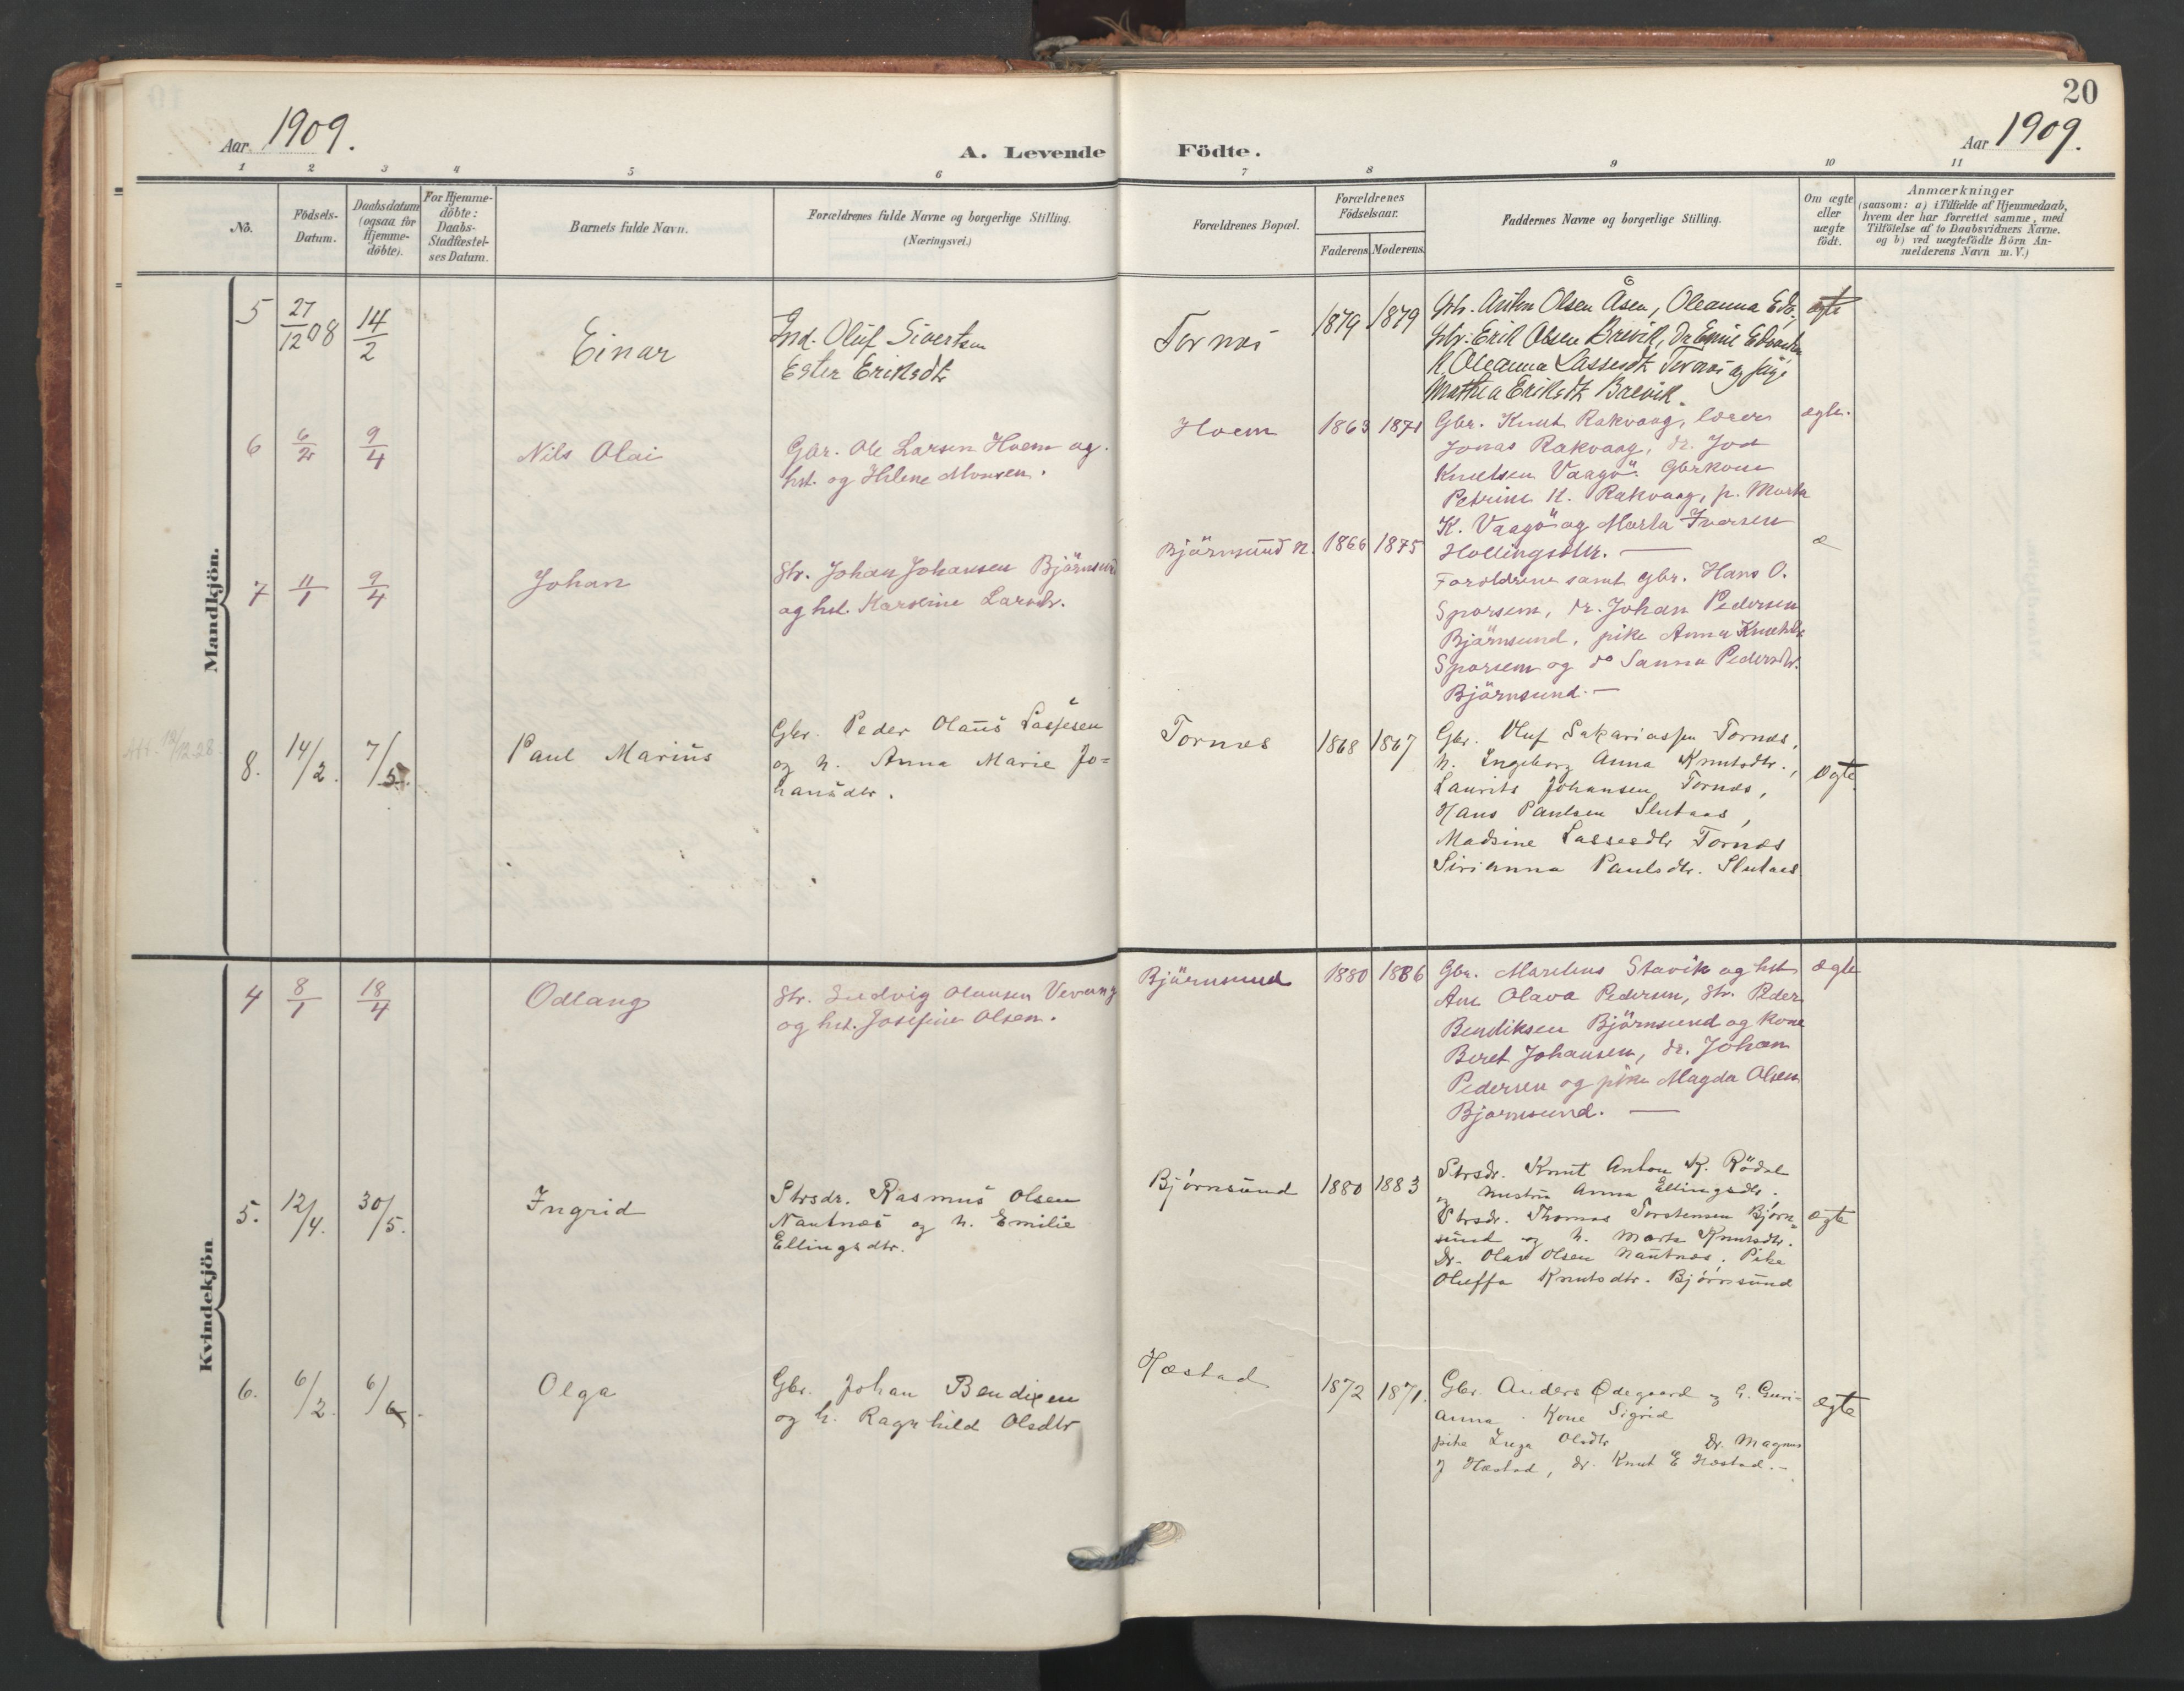 20
Aar 1909.
A. Levende Födte.
Aar 1909.
1 2 3 4 5 6 7 8 9 10 11
No.
Födsels-
Datum.
Daabsdatum
(ogsaa for
Hjemme-
döbte).
For Hjemme-
döbte:
Daabs-
Stadfæstel-
ses Datum.
Barnets fulde Navn.
Forældrenes fulde Navne og borgerlige Stilling.
(Næringsvei.)
Forældrenes Bopæl.
Forældrenes
Födselsaar.
Faderens. Moderens.
Faddernes Navne og borgerlige Stilling.
Om ægte
eller
uægte
födt.
Anmærkninger
(saasom: a) i Tilfælde af Hjemmedaab,
hvem der har forrettet samme, med
Tilföielse af to Daabsvidners Navne,
og b) ved uægtefödte Börn An-
melderens Navn m.V.)
Mandkjön.
5
27/12 08
14/2
Einar
Ind. Oluf Sivertsen
Ester Eriksdtr
Tornes
1879 1879
Gbr. Anton Olsen Åsen, Oleanna
Gbr. Erik Olsen Brevik, Dr Emil
K Oleanna Lassesdtr Tornes og pige
Mathea Eriksdtr Brevik.
ægte
6
6/2
9/4
Nils Olai
Gbr. Ole Larsen Hoem og
hst. og Helene Monsen.
Hoem
1863 1871
Gbr. Knut Rakvaag, lærer
Jonas Rakvaag, dr. Jod
Knutsen Vaagö. Gbrkone
Petrine K. Rakvaag, p. Marta
K. Vaagö og Marta Iversen
Hollingsæter. —
ægte.
7
11/1
9/4
Johan
Str. Johan Johansen Björnsund
og hst. Karoline Larsdtr.
Björnsund n.
1866 1875
Forældrene samt gbr. Hans O.
Sporsem, dr. Johan Pedersen
Björnsund, pike Anna Knutsdtr
Sporsem og do Sanna Pedersdtr.
Björnsund. —
æ
8.
14/2.
7/5.
Paul Marius
Gbr. Peder Olaus Lassesen
og h. Anna Marie Jo-
hansdtr.
Tornes
1868 1867
Gbr. Oluf Sakariassen Tornes,
h. Ingeborg Anna Knutsdtr.,
Laurits Johansen Tornes,
Hans Paulsen Slutaas,
Madsine Lassesdtr Tornes
Sirianna Paulsdtr. Slutaas
ægte
Kvindekjön
4
8/1
18/4
Odlaug
Str. Ludvig Olausen Vevang
og hst. Josefine Olsen.
Björnsund
1880 1886
Gbr. Marelius Stavik og hst
Ane Olava Pedersen, str. Peder
Bendiksen Björnsund og kone
Beret Johansen, dr. Johan
Pedersen og pike Magda Olsen
Bjørnsund. —
ægte
5.
12/4.
30/5.
Ingrid
Strsdr. Rasmus Olsen
Nautnes og h. Emilie
Ellingsdtr.
Bjørnsund
1880 1883
Strsdr. Knut Anton K. Rödal
og hustru Anna Ellingsdtr.
Strsdr. Thomas Torstensen Bjørn-
sund og h. Marta Knutsdtr.
Dr. Olav Olsen Nautnes. Pike
Oluffa Knutsdtr. Bjørnsund
ægte
6.
6/2.
6/6.
Olga
Gbr. Johan Bendixen
og h. Ragnhild Olsdtr
Hæstad
1872 1871.
Gbr. Anders Ødegaard og h. Guri-
anna. Kone Sigrid
pike Inga Olsdtr Dr. Magnus
J Hæstad, dr. Knut E Hæstad. -
ægte